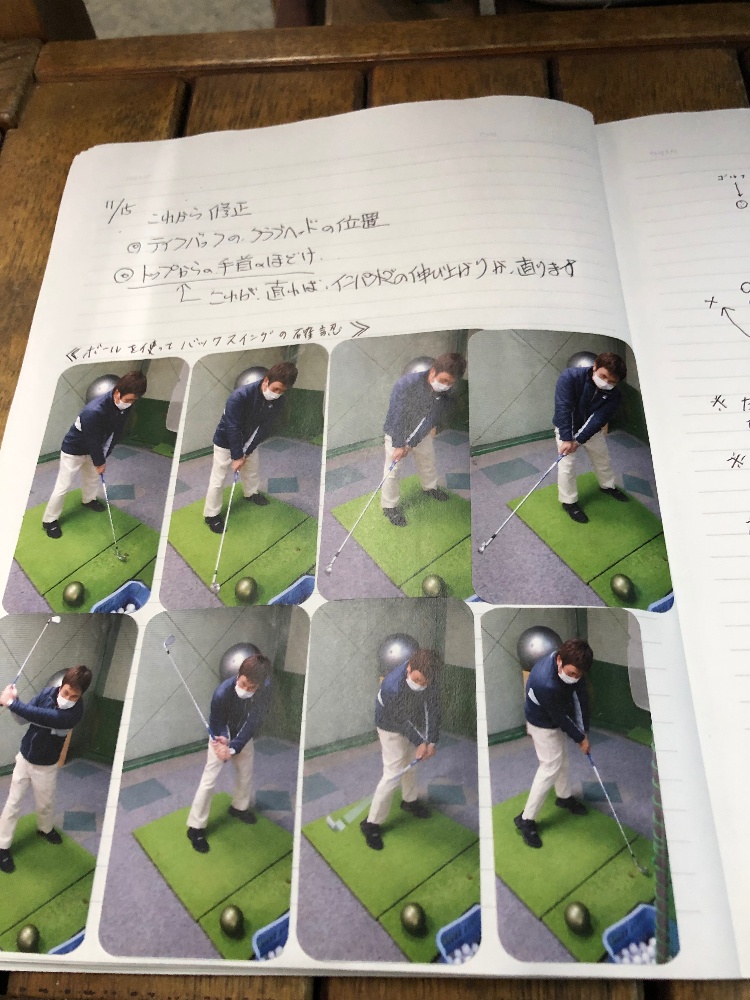 11/15 これから修正
◎ テイクバックの、クラブヘッドの位置
◎ トップからの手首のほどけ
↑ これが、直れば、インパクトの伸び上がりが、直ります
≪ボールを使ってバックスイングの確認≫
ゴルフ
※
※